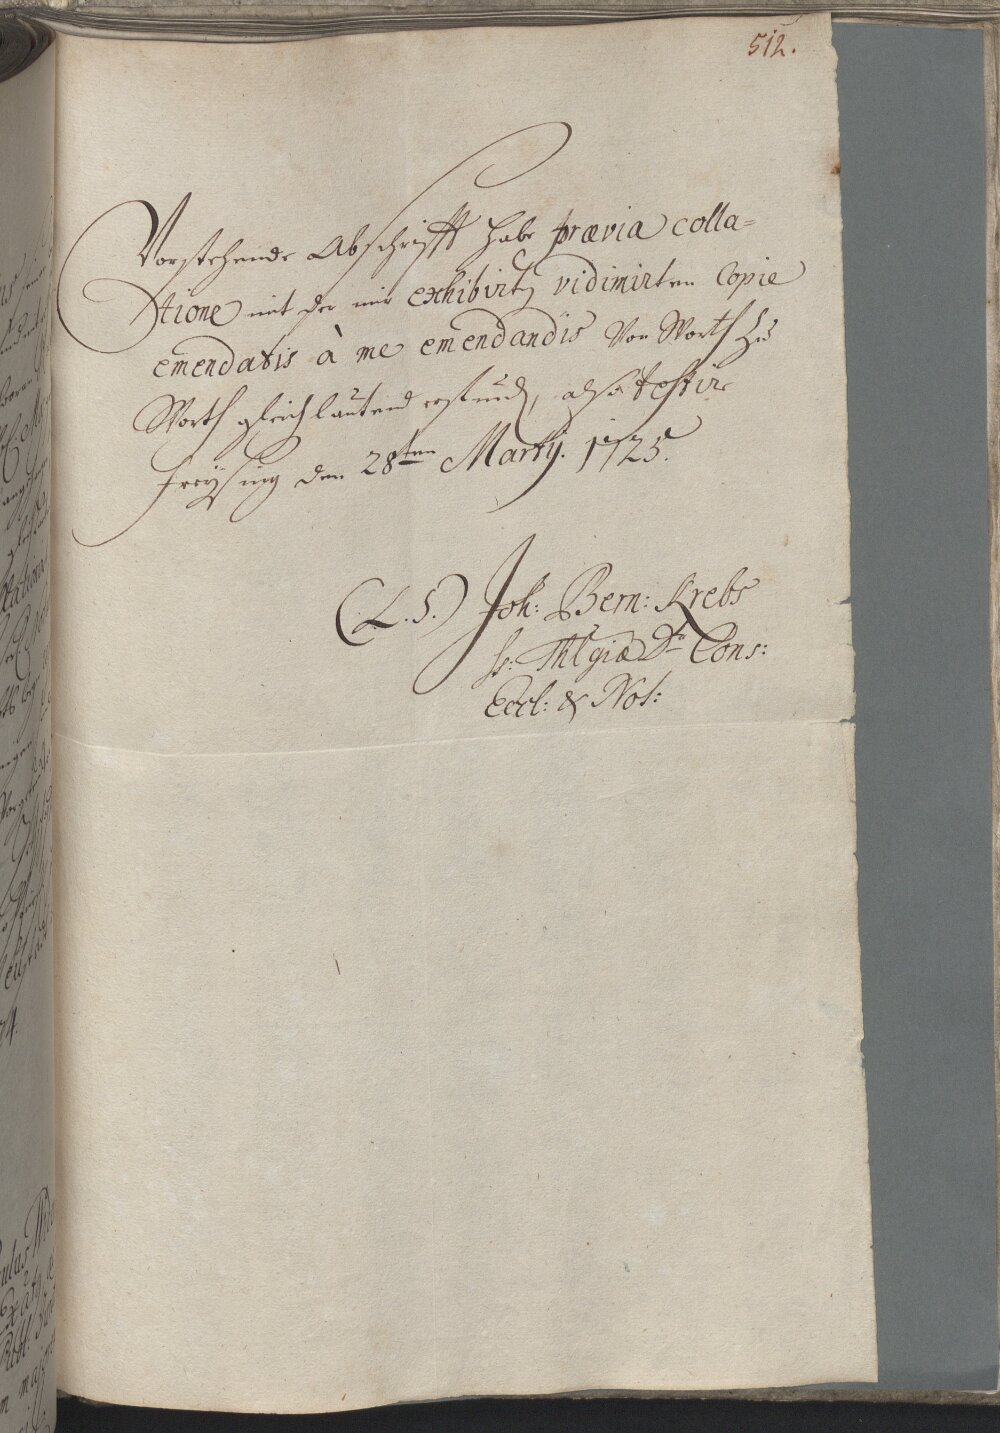 512.
Vorstehende Abschrifft habe prævia colla=
tione mit der mir exhibirten vidimirten Copie
emendatis à me emendandis von Worth zu
Worth gleichlautend erfunden, also testire
Freysing den 28ten Martij. 1725.
(L. S.) Joh: Bern: Krebs
ss: Thlgiæ Dr Cons:
Eccl: & Not: